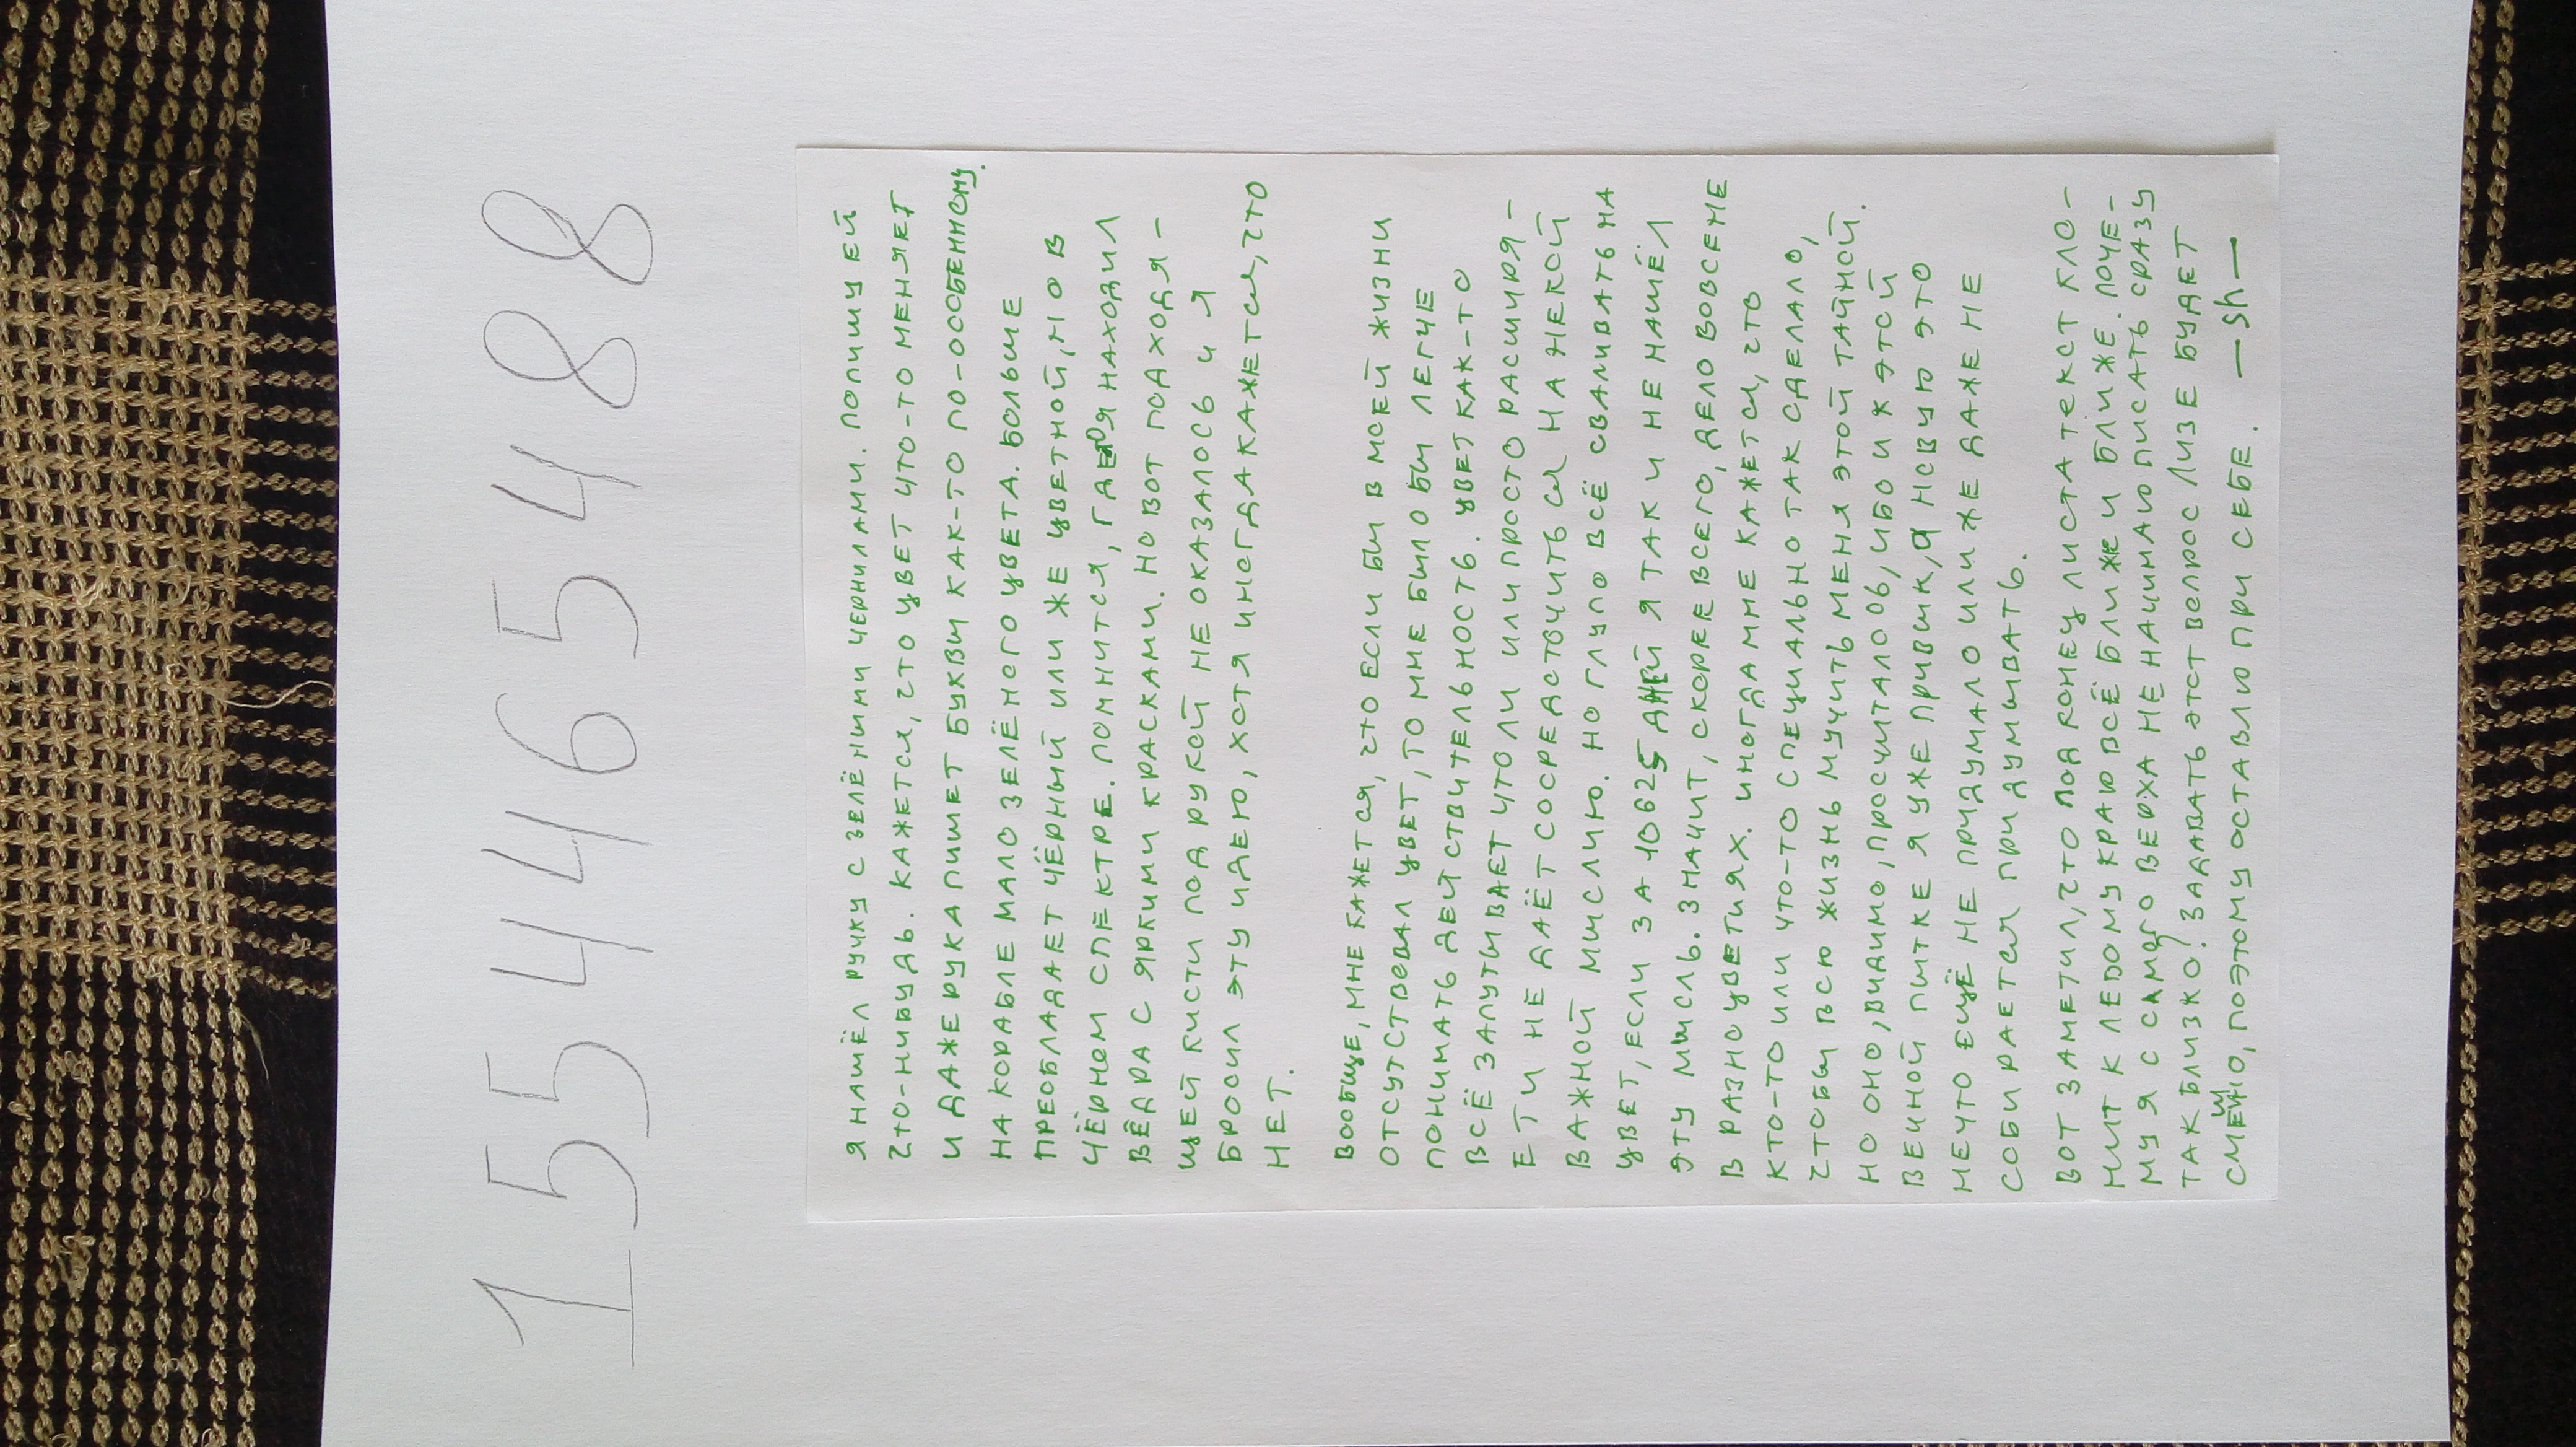 1554465488
Я НАШЁЛ РУЧКУ С ЗЕЛЁНЫМИ ЧЕРНИЛАМИ. ПОПИШУ ЕЙ
ЧТО-НИБУДЬ. КАЖЕТСЯ, ЧТО ЦВЕТ ЧТО-ТО МЕНЯЕТ
И ДАЖЕ РУКА ПИШЕТ БУКВЫ КАК-ТО ПО-ОСОБЕННОМУ.
НА КОРАБЛЕ МАЛО ЗЕЛЁНОГО ЦВЕТА. БОЛЬШЕ
ПРЕОБЛАДАЕТ ЧЁРНЫЙ ИЛИ ЖЕ ЦВЕТНОЙ, НО В
ЧЁРНОМ СПЕКТРЕ. ПОМНИТСЯ, ГДЕ Я НАХОДИЛ
ВЁДРА С ЯРКИМИ КРАСКАМИ. НО ВОТ ПОДХОДЯ-
ЩЕЙ КИСТИ ПОД РУКОЙ НЕ ОКАЗАЛОСЬ И Я
БРОСИЛ ЭТУ ИДЕЮ, ХОТЯ ИНОГДА КАЖЕТСЯ, ЧТО
НЕТ.
ВООБЩЕ, МНЕ КАЖЕТСЯ, ЧТО ЕСЛИ БЫ В МОЕЙ ЖИЗНИ
ОТСУТСТВОВАЛ ЦВЕТ, ТО МНЕ БЫЛО БЫ ЛЕГЧЕ
ПОНИМАТЬ ДЕЙСТВИТЕЛЬНОСТЬ. ЦВЕТ КАК-ТО
ВСЁ ЗАПУТЫВАЕТ ЧТО ЛИ ИЛИ ПРОСТО РАСШИРЯ-
ЕТ И НЕ ДАЁТ СОСРЕДОТОЧИТЬСЯ НА НЕКОЙ
ВАЖНОЙ МЫСЛИЮ. НО ГЛУПО ВСЁ СВАЛИВАТЬ НА
ЦВЕТ, ЕСЛИ ЗА 10625 ДНЕЙ Я ТАК И НЕ НАШЁЛ
ЭТУ МЫСЛЬ. ЗНАЧИТ, СКОРЕЕ ВСЕГО, ДЕЛО ВОВСЕ НЕ
В РАЗНОЦВЕТИЯХ. ИНОГДА МНЕ КАЖЕТСЯ, ЧТО
КТО-ТО ИЛИ ЧТО-ТО СПЕЦИАЛЬНО ТАК СДЕЛАЛО,
ЧТОБЫ ВСЮ ЖИЗНЬ МУЧИТЬ МЕНЯ ЭТОЙ ТАЙНОЙ.
НО ОНО, ВИДИМО, ПРОСЧИТАЛОСЬ, ИБО И К ЭТОЙ
ВЕЧНОЙ ПЫТКЕ Я УЖЕ ПРИВЫК, А НОВУЮ ЭТО
НЕЧТО ЕЩЁ НЕ ПРИДУМАЛО ИЛИ ЖЕ ДАЖЕ НЕ
СОБИРАЕТСЯ ПРИДУМЫВАТЬ.
ВОТ ЗАМЕТИЛ, ЧТО ПОД КОНЕЦ ЛИСТА ТЕКСТ КЛО-
НИТ К ЛЕВОМУ КРАЮ ВСЁ БЛИЖЕ И БЛИЖЕ. ПОЧЕ-
МУ Я С САМОГО ВЕРХА НЕ НАЧИНАЮ ПИСАТЬ СРАЗУ
ТАК БЛИЗКО? ЗАДАВАТЬ ЭТОТ ВОПРОС ЛИЗЕ БУДЕТ
СМЕШНО, ПОЭТОМУ ОСТАВЛЮ ПРИ СЕБЕ. —Sh—